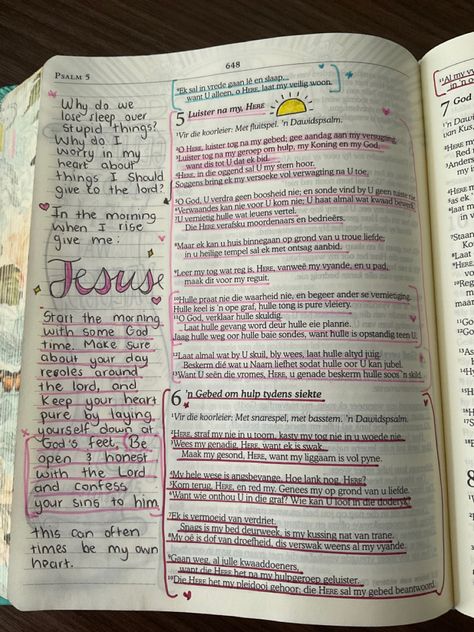 PSALM 5
648
Why do we
lose sleep over
stupid things?
Why do I
worry in my
heart about
things I should
give to the lord?
In the morning
when I rise
give me:
Jesus
Start the morning
with some God
time. Make sure
about your day
revoles around
the lord, and
keep your heart
pure by laying
yourself down at
God's feet. Be
open & honest
with the Lord
and confess
your sins to him
this can often
times be my own
heart.
⁹Ek sal in vrede gaan lê en slaap...
want U alleen, o HERE, laat my veilig woon.
5 Luister na my, HERE
¹Vir die koorleier: Met fluitspel. 'n Dawidspsalm.
²O HERE, luister tog na my gebed; gee aandag aan my versugting.
³Luister tog na my geroep om hulp, my Koning en my God,
want dis tot U dat ek bid.
⁴HERE, in die oggend sal U my stem hoor.
Soggens bring ek my versoeke vol verwagting na U toe.
⁵O God, U verdra geen boosheid nie; en sonde vind by U geen tuiste nie.
⁶Verwaandes kan nie voor U kom nie; U haat almal wat kwaad bewerk.
⁷U vernietig hulle wat leuens vertel.
Die HERE verafsku moordenaars en bedrieërs.
⁸Maar ek kan u huis binnegaan op grond van u troue liefde;
in u heilige tempel sal ek met ontsag aanbid.
⁹Leer my tog wat reg is, HERE, vanweë my vyande, en u pad,
maak dit voor my reguit.
¹⁰Hulle praat nie die waarheid nie, en begeer ander se vernietiging.
Hulle keel is 'n ope graf, hulle tong is pure vleiery.
¹¹O God, verklaar hulle skuldig.
Laat hulle gevang word deur hulle eie planne.
Jaag hulle weg oor hulle baie sondes, want hulle is opstandig teen U.
¹²Laat almal wat by U skuil, bly wees, laat hulle altyd juig.
Beskerm dié wat u Naam liefhet sodat hulle oor U kan jubel.
¹³Want U seën die vromes, HERE, u genade beskerm hulle soos 'n skild.
6 'n Gebed om hulp tydens siekte
¹Vir die koorleier: Met snarespel, met basstem. 'n Dawidspsalm.
²HERE, straf my nie in u toorn, kasty my tog nie in u woede nie.
³Wees my genadig, HERE, want ek is swak.
Maak my gesond, HERE, want my liggaam is vol pyne.
⁴My hele wese is angsbevange. Hoe lank nog, HERE?
⁵Kom terug, HERE, en red my. Genees my op grond van u liefde.
⁶Want wie onthou U in die graf? Wie kan U loof in die doderyk?
⁷Ek is vermoeid van verdriet.
Snags is my bed deurweek, is my kussing nat van trane.
⁸My oë is dof van droefheid, dis verswak weens al my vyande.
⁹Gaan weg, al julle kwaaddoeners,
want die HERE het na my hulpgeroep geluister.
¹⁰Die HERE het my pleidooi gehoor; die HERE sal my gebed beantwoord.
7 God